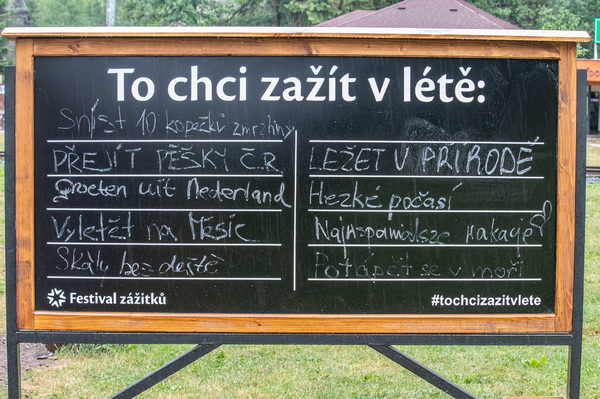 To chci zažít v létě:
Sníst 10 kopečků zmrzliny
PŘEJÍT PĚŠKY Č.R.
Groeten uit Nederland
Vyletět na Měsíc
Skály bez deště
LEŽET V PŘÍRODĚ
Hezké počasí
Potápět se v moři
Festival zážitků
#tochcizazitvlete